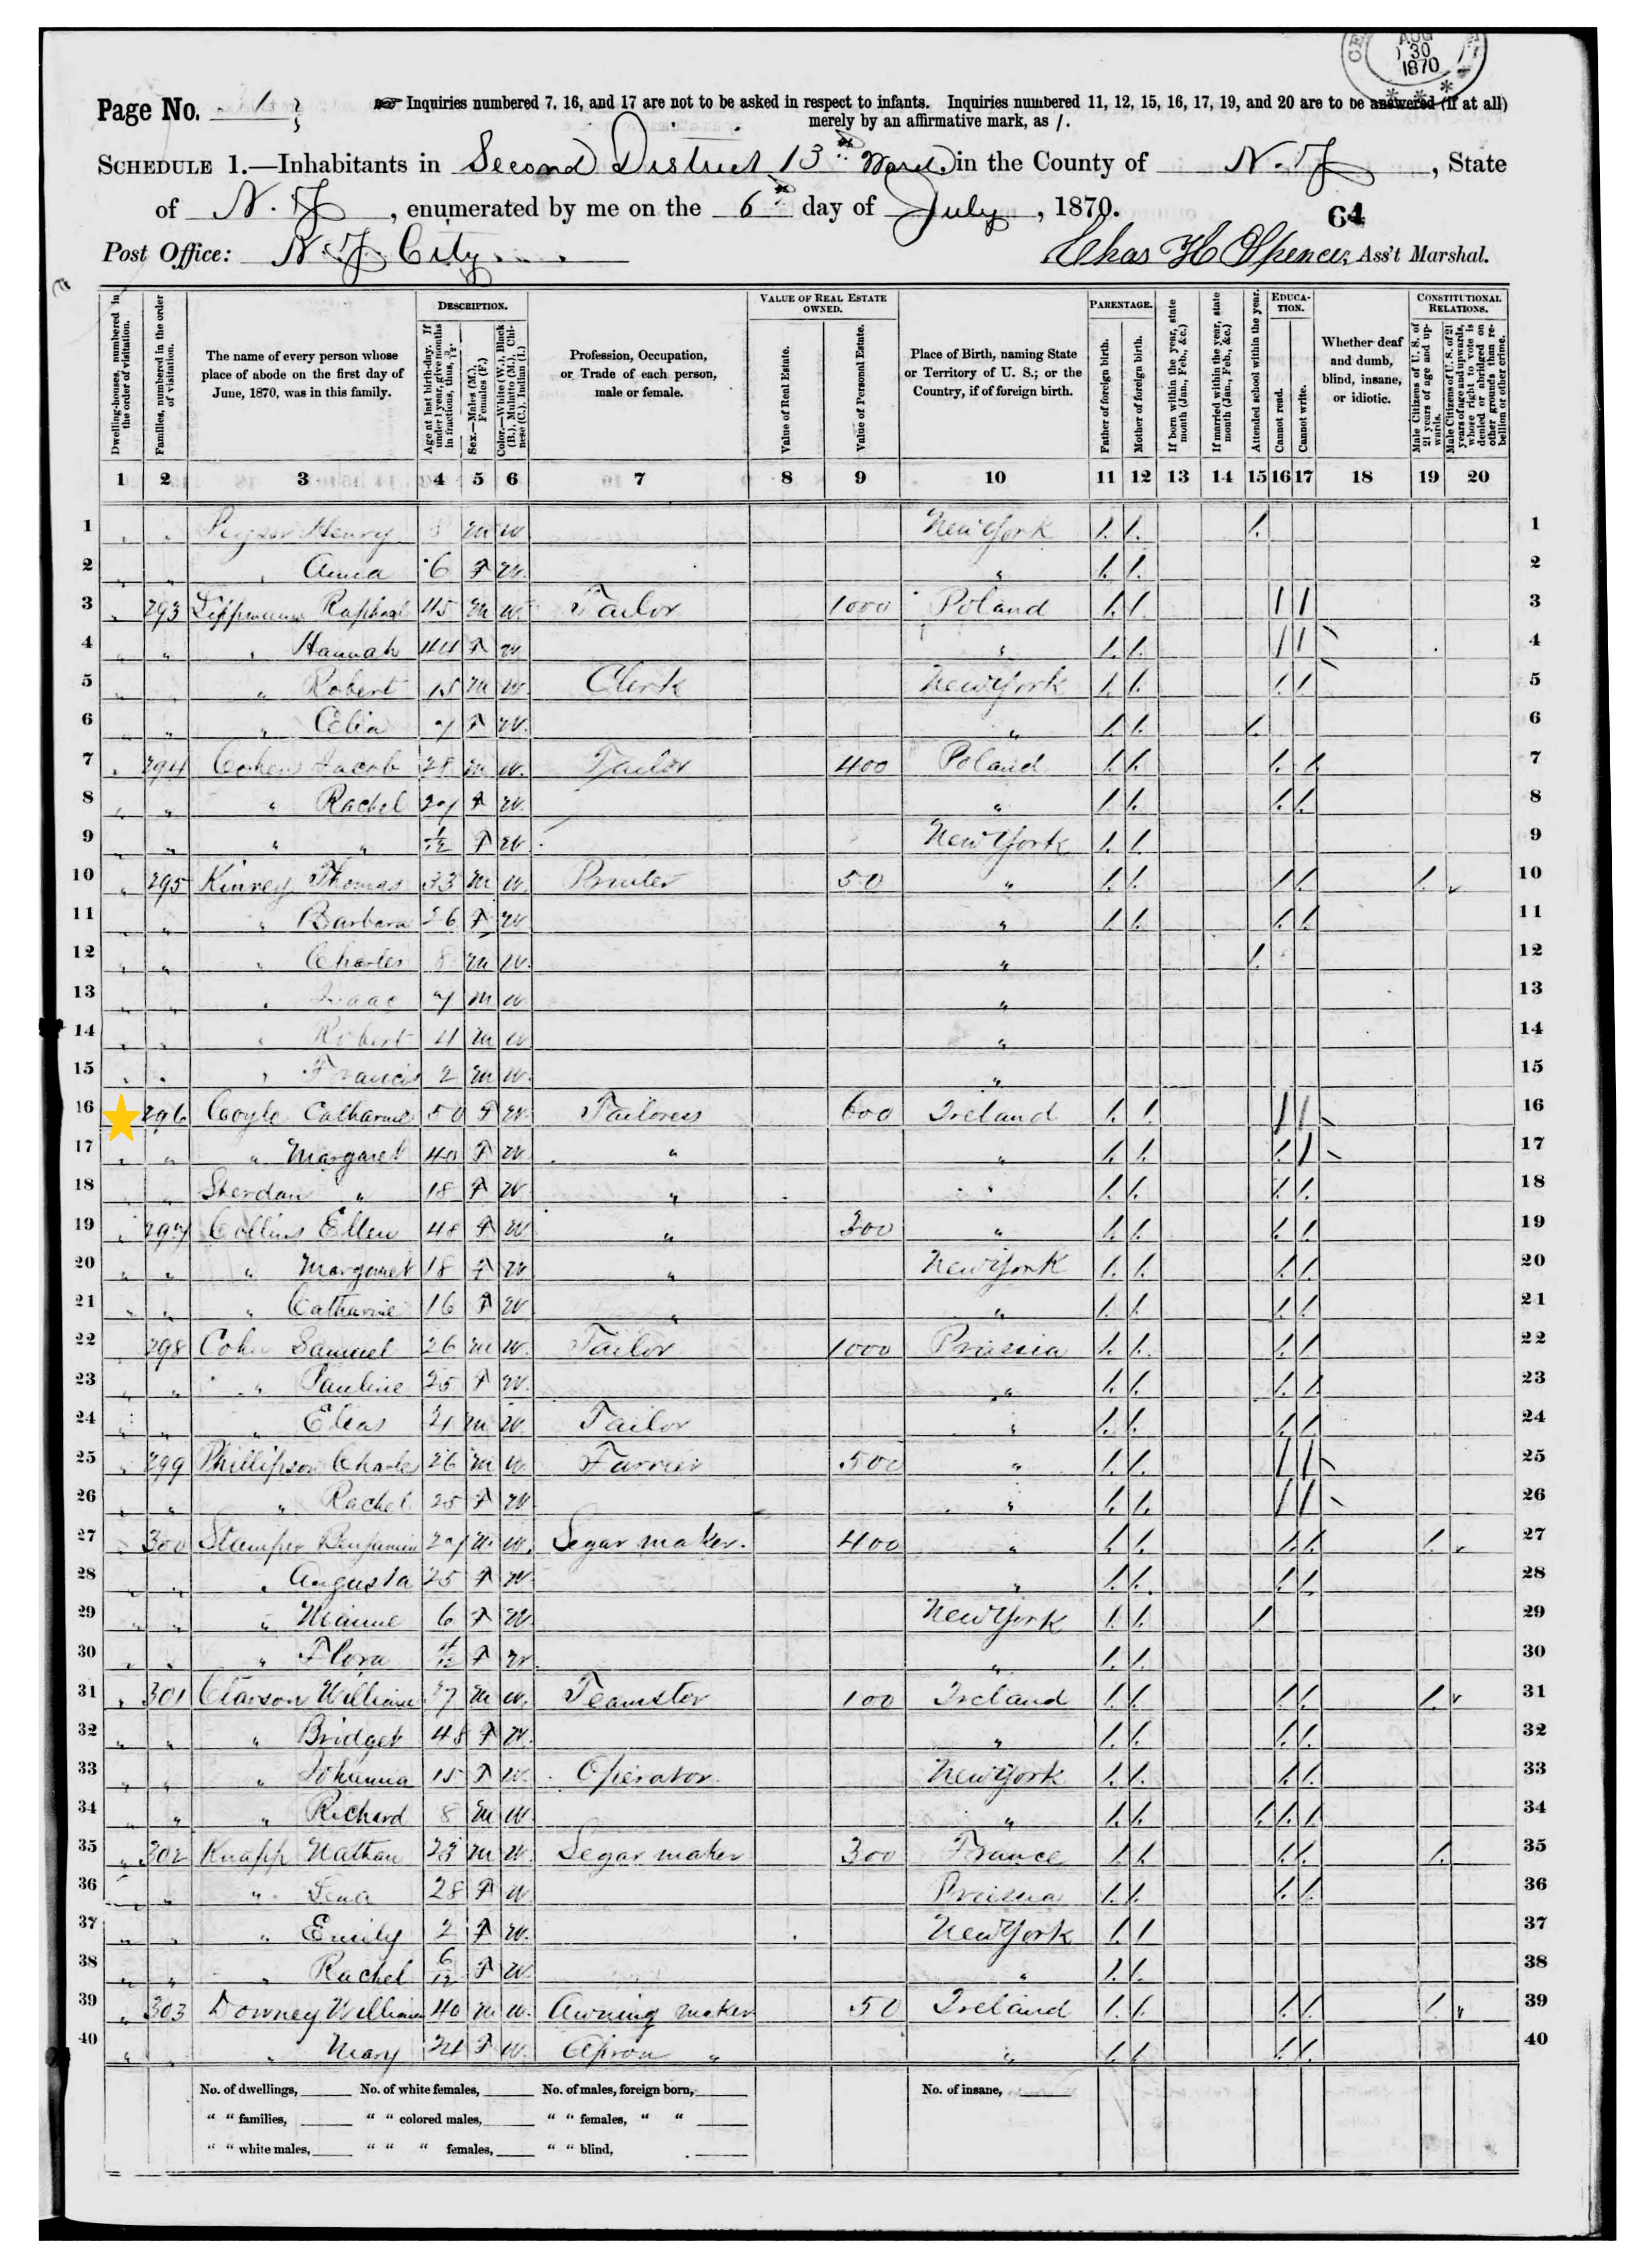 AUG
30
1870
Page No. 1
Inquiries numbered 7, 16, and 17 are not to be asked in respect to infants. Inquiries numbered 11, 12, 15, 16, 17, 19, and 20 are to be answered (if at all)
merely by an affirmative mark, as /.
SCHEDULE 1.—Inhabitants in Second District 13th Ward, in the County of N.Y., State
of N.Y., enumerated by me on the 6th day of July, 1870.
64
Post Office: N.Y. City Chas H Spencer, Ass't Marshal.
Dwelling-houses, numbered in the order of visitation.
Families, numbered in the order of visitation.
The name of every person whose place of abode on the first day of June, 1870, was in this family.
DESCRIPTION.
Age at last birth-day. If under 1 year, give months in fractions, thus, 3/12.
Sex.—Males (M.), Females (F.)
Color.—White (W.), Black (B.), Mulatto (M.), Chinese (C.), Indian (I.)
Profession, Occupation, or Trade of each person, male or female.
VALUE OF REAL ESTATE OWNED.
Value of Real Estate.
Value of Personal Estate.
Place of Birth, naming State or Territory of U. S.; or the Country, if of foreign birth.
PARENTAGE.
Father of foreign birth.
Mother of foreign birth.
If born within the year, state month (Jan., Feb., &c.)
If married within the year, state month (Jan., Feb., &c.)
EDUCATION.
Attended school within the year.
Cannot read.
Cannot write.
Whether deaf and dumb, blind, insane, or idiotic.
CONSTITUTIONAL RELATIONS.
Male Citizens of U. S. of 21 years of age and upwards.
Male Citizens of U. S. of 21 years of age and upwards, whose right to vote is denied or abridged on other grounds than rebellion or other crime.
1 2 3 4 5 6 7 8 9 10 11 12 13 14 15 16 17 18 19 20
1 Henry m w New York / / / 1
2 " Anna 6 F W " / / 2
3 293 Lippmann Raphael 45 m w Tailor 1000 Poland / / / / 3
4 " " Hannah 44 F W " / / / / 4
5 " Robert 15 m w Clerk New York / / / / 5
6 " " Celia 7 F W " / / / 6
7 294 Cohen Jacob 28 m w Tailor 400 Poland / / / / 7
8 " " Rachel 27 F W " / / / / 8
9 " " " 1/12 F W New York / / 9
10 295 Kinney Thomas 33 m w 50 " / / / / / 10
11 " " Barbara 26 F W " / / / / 11
12 " " Charles 8 m w " / 12
13 " " Isaac 7 m w " 13
14 " " Robert 4 m w " 14
15 " " Francis 2 m w " 15
16 296 Coyle Catharine 50 F W Tailoress 600 Ireland / / / / 16
17 " " Margaret 40 F W " " / / / / 17
18 " Sherdan " 18 F W " " / / / / 18
19 297 Collins Ellen 48 F W " 300 " / / / / 19
20 " " Margaret 18 F W " New York / / / / 20
21 " " Catharine 16 F W " " / / / / 21
22 298 Cohn Samuel 26 m w Tailor 1000 Prussia / / / / 22
23 " " Pauline 25 F W " / / / / 23
24 " " Elias 21 m w Tailor " / / / / 24
25 299 Phillipson Charles 26 m w Farrier 500 " / / / / 25
26 " " Rachel 25 F W " / / / / 26
27 300 Stamper Benjamin 27 m w Segar maker 400 " / / / / / 27
28 " " Augusta 25 F W " / / / / 28
29 " " Minnie 6 F W New York / / / 29
30 " " Flora F W " / / 30
31 301 Clarson William m w Teamster 100 Ireland / / / / / 31
32 " " Bridget 48 F W " / / / / 32
33 " " Johanna 15 F W Operator New York / / / / 33
34 " " Richard 8 m w " / / / / / 34
35 302 Knapp Nathan 28 m w Segar maker 300 France / / / / / 35
36 " " Lena 28 F W Prussia / / / / 36
37 " " Emily 2 F W New York / / 37
38 " " Rachel 6/12 F W " / / 38
39 303 Downey William 40 m w Awning maker 50 Ireland / / / / / 39
40 " " Mary 24 F W Apron " " / / / / 40
No. of dwellings, No. of white females, No. of males, foreign born, No. of insane,
" " families, " " colored males, " " females, " "
" " white males, " " " females, " " blind,